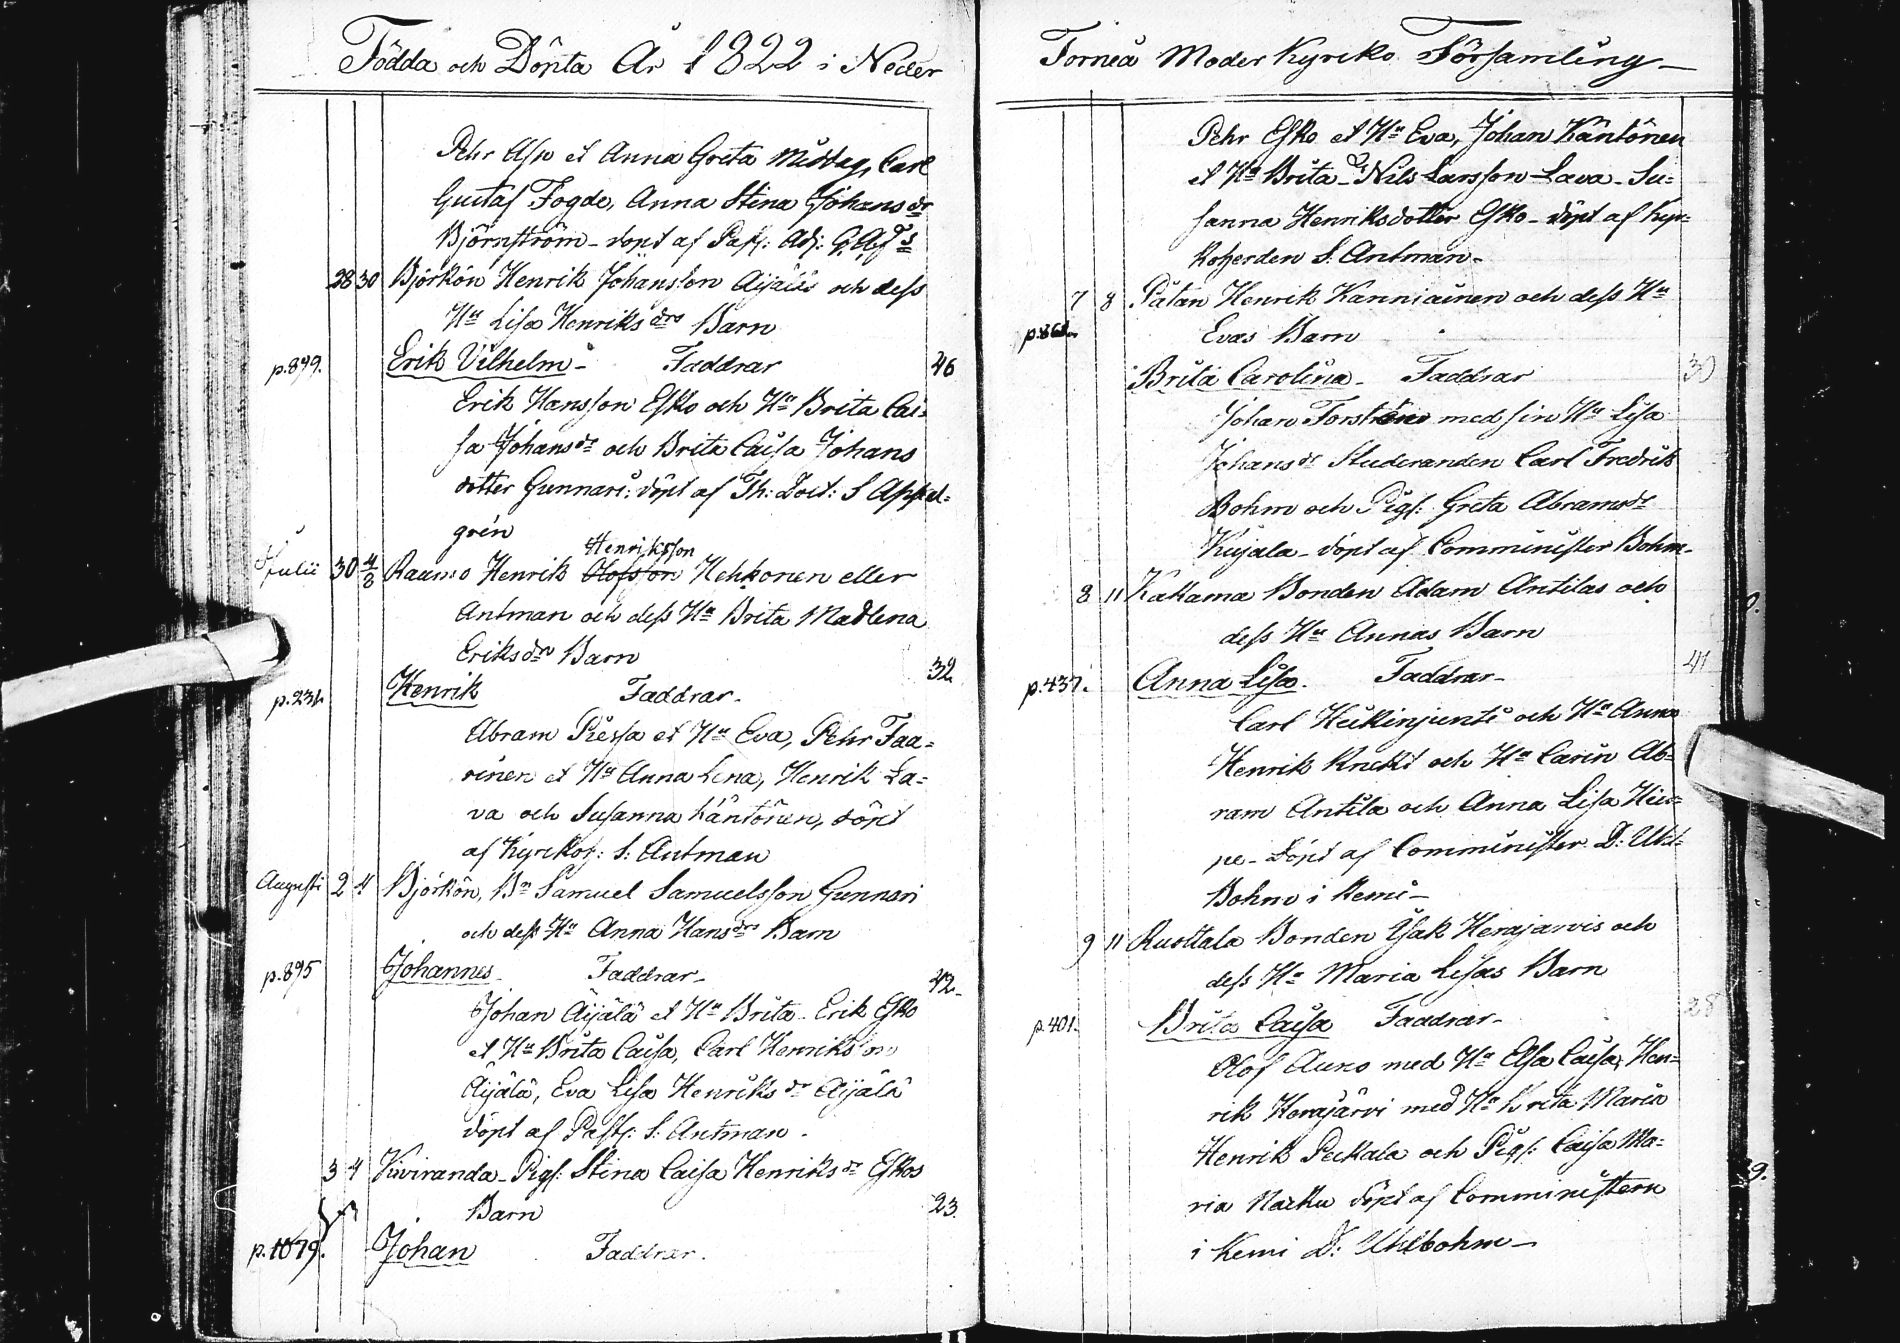 Födda och Döpta År 1822 i Neder
Pehr Asp et Anna Greta Middag, Carl
Gustaf Fogde, Anna Stina Johans dr
Björnström - döpt af Past: Adj:
28 30 Björkön Henrik Johansson Äijälä och dess
Hu Lisa Henriks drs Barn
p.879. Erik Vilhelm - Faddrar 46
Erik Hansson Esko och Hu Brita Cai=
sa Johansdr och Brita Caisa Johans
dotter Gunnari: döpt af Th: Doct: S Appel=
grén
Henriksson
Julii 30 4/8 Raumo Henrik Olofsson Hehkonen eller
Antman och dess Hu Brita Madlena
Eriksdrs Barn
p.234 Henrik Faddrar. 32
Abram Piessa et Hu Eva, Pehr Taa=
vinen et Hu Anna Lena, Henrik La=
va och Susanna Käntönen, döpt
af Kyrkoh: S: Antman
Augusti 2 4 Björkön, Bn Samuel Samuelsson Gunnari
och dess Hu Anna Hansdrs Barn
p.895 Johannes Faddrar - 42.
Johan Äijälä et Hu Brita - Erik Esko
et Hu Brita Caisa, Carl Henriksson
Äijälä, Eva Lisa Henriks dr Äijälä
döpt af Past: S: Antman.
3 4 Kuviranda - Pig: Stina Caisa Henriks dr Eskos
Barn 23.
p.1079. Johan Faddrar.
Torneå Moder Kyrcko Församling -
Pehr Esko et Hu Eva, Johan Käntönen
et Hu Brita - Nils Larsson Lava - Su=
sanna Henriksdotter Esko - döpt af Kyr=
koherden S. Antman -
7 8 Pätan Henrik Kanniainen och dess Hu
Evas Barn
Brita Carolina - Faddrar 30
Johan Forström med sin Hu Lisa
Johans dr Studeranden Carl Fredrik
Bohm och Pig: Greta Abramsdr
Kujala - döpt af Comminister Bohm -
8 11 Kakama Bonden Adam Antilas och
dess Hu Annas Barn
p.437. Anna Lisa. Faddrar - 41
Carl Heikinjunti och Hu Anna
Henrik Knekt och Hu Carin Ab=
ram Antila och Anna Lisa
pe - döpt af Comminister D:
Bohm i Kemi -
9 11 Ruottala Bonden Isak Herajärvis och
dess Hu Maria Lisas Barn
p.401. Brita Caisa Faddrar - 28
Olof Auno med Hu Elsa Caisa, Hen=
rik Herajärvi med Hu Greta Maria
Henrik Peckala och Pig: Caisa Ma=
ria döpt af Comministern
i Kemi D: Uhlbohm -